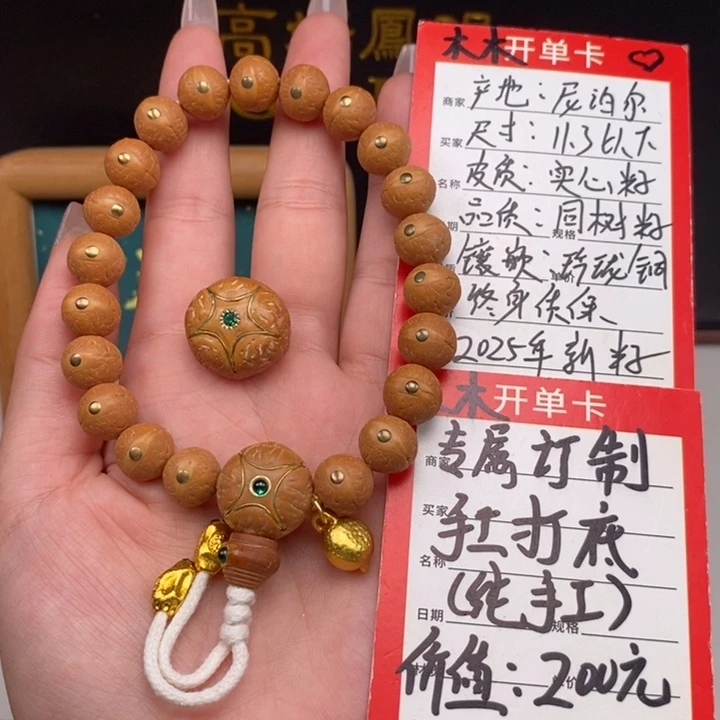 木木开单卡
商家 产地：尼泊尔
买家 尺寸：11.3以下
名称 皮质：实心籽
期 品质：同树籽 规格
镶嵌：玲珑铜
终身质保、
2025年新籽
木开单卡
商家 专属订制
买家 手工打底
名称 (纯手工)
日期 规格
价值：200元